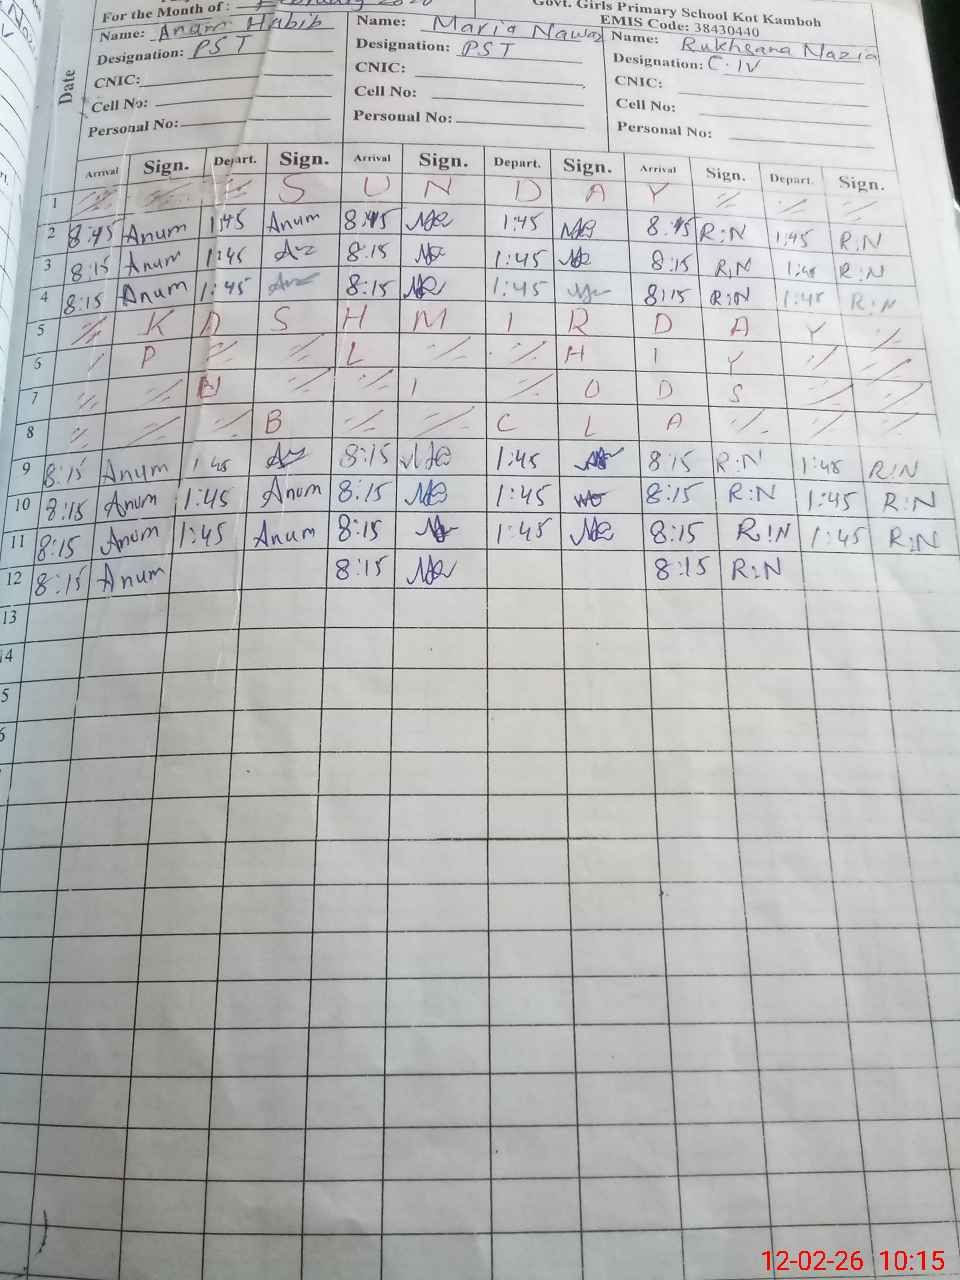 For the Month of : February
Govt. Girls Primary School Kot Kamboh
EMIS Code: 38430440
Date
Name: Anum Habib
Designation: PST
CNIC:
Cell No:
Personal No:
Name: Maria Nawaz
Designation: PST
CNIC:
Cell No:
Personal No:
Name: Rukhsana Nazia
Designation: C.IV
CNIC:
Cell No:
Personal No:
Arrival Sign. Depart. Sign. Arrival Sign. Depart. Sign. Arrival Sign. Depart. Sign.
1 S U N D A Y
2 8:45 Anum 1:45 Anum 8:45 1:45 8:45 R:N 1:45 R:N
3 8:15 Anum 1:45 8:15 1:45 8:15 R:N 1:45 R:N
4 8:15 Anum 1:45 8:15 1:45 8:15 R:N 1:45 R:N
5 K A S H M I R D A Y
6 P L H I Y
7 I O D S
8 B C L A
9 8:15 Anum 1:45 8:15 1:45 8:15 R:N 1:45 R:N
10 8:15 Anum 1:45 Anum 8:15 1:45 8:15 R:N 1:45 R:N
11 8:15 Anum 1:45 Anum 8:15 1:45 8:15 R:N 1:45 R:N
12 8:15 Anum 8:15 8:15 R:N
13
14
5
6
12-02-26 10:15